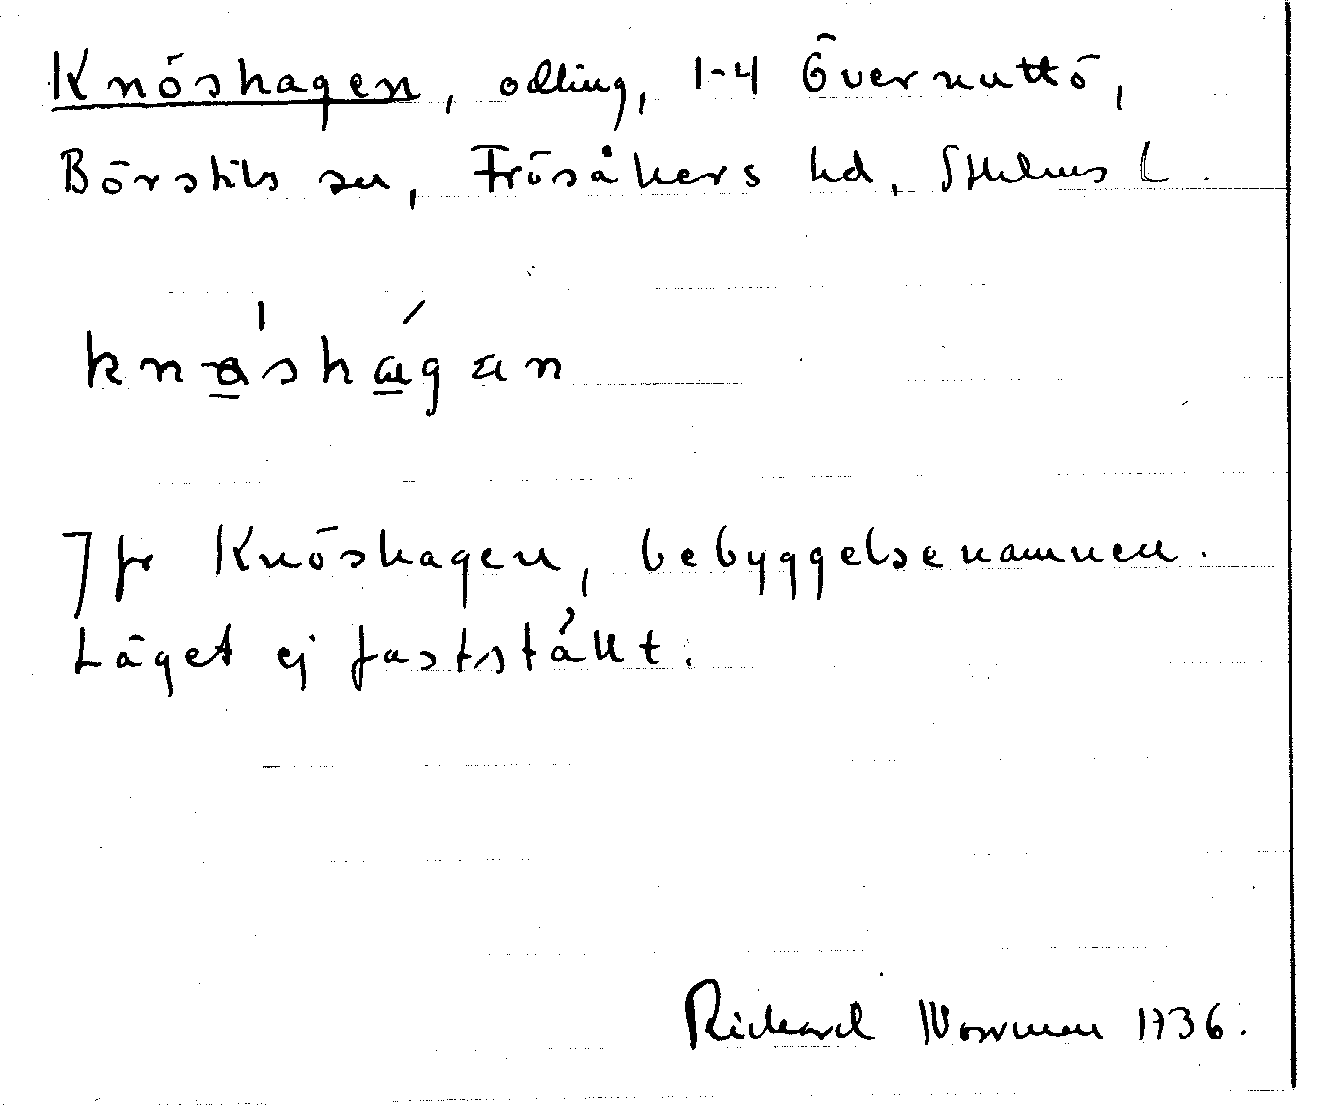 Knöshagen, odling, 1-4 Övernuttö,
Börstils sn, Frösåkers hd, Sthlms l.
knøshagan
Jfr Knöshagen, bebyggelsenamnen.
Läget ej fastställt.
Richard 1936.